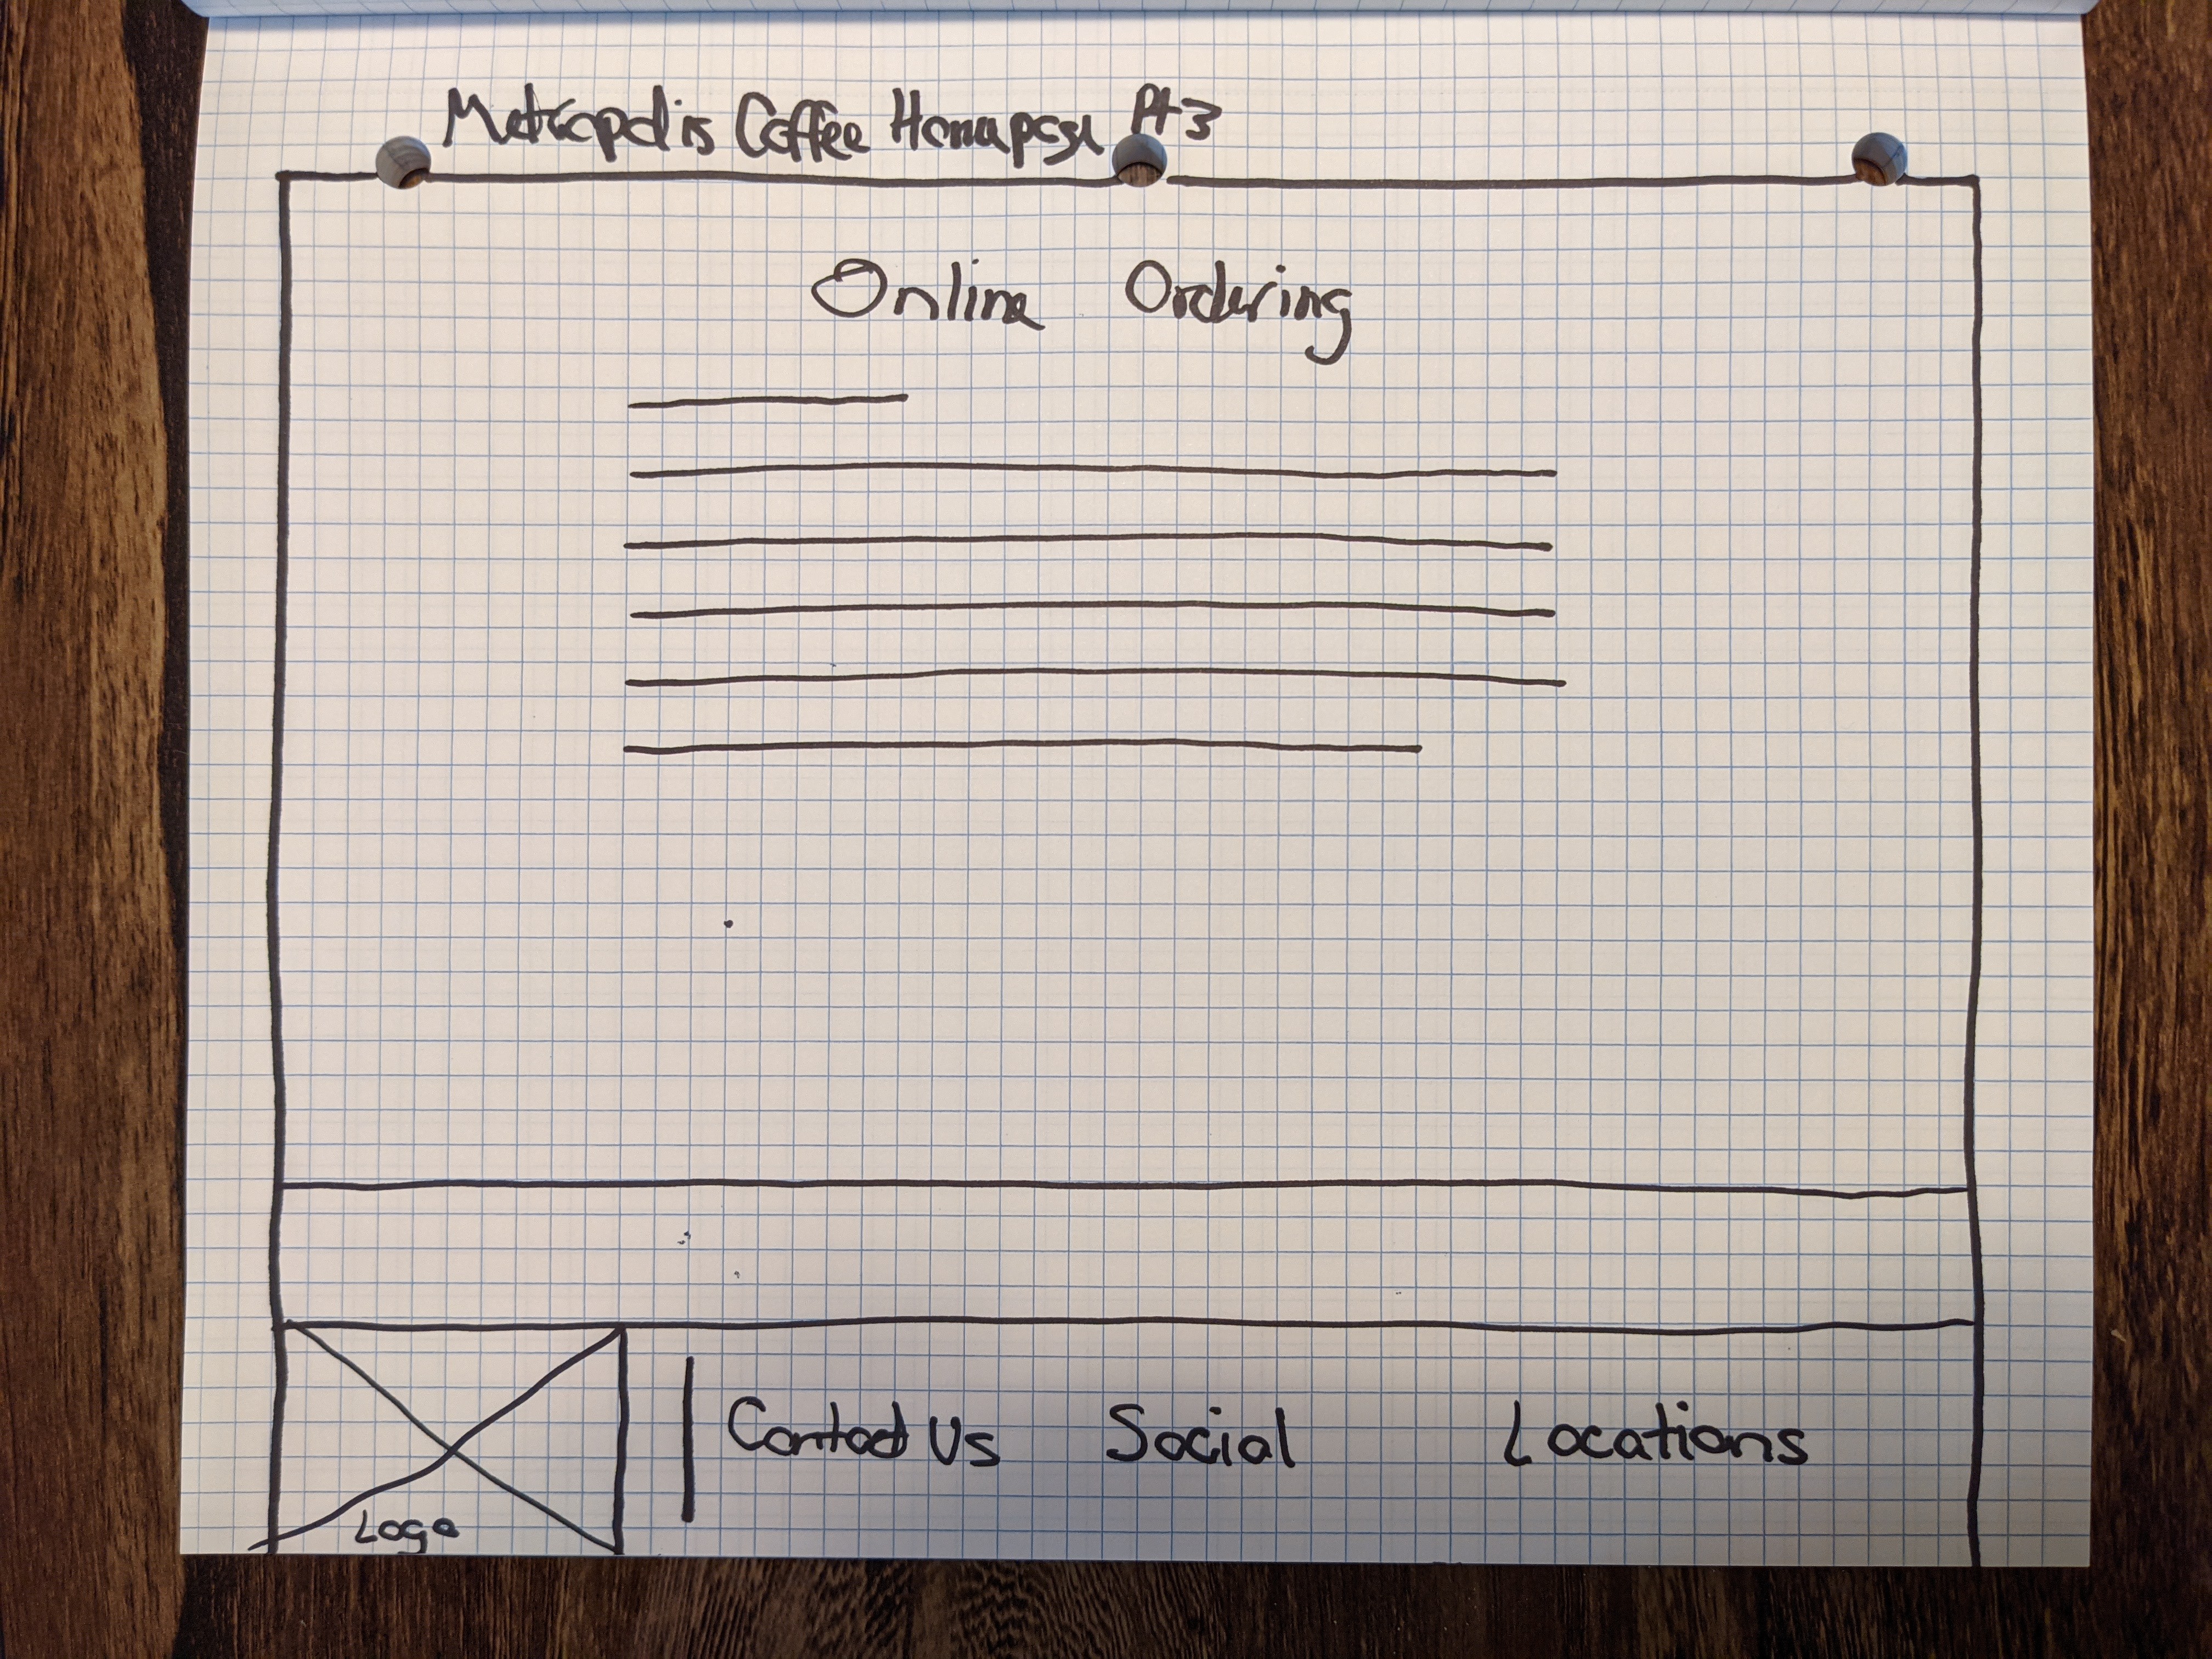 Metropolis Coffee Homepage Pt 3
Online Ordering
Contact Us Social Locations
Logo